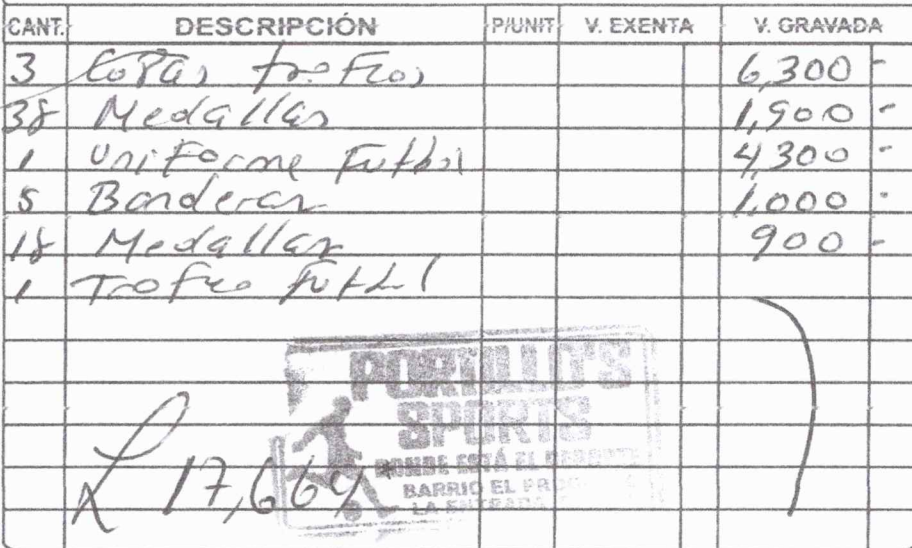 CANT. DESCRIPCIÓN P/UNIT V. EXENTA V. GRAVADA
3 Copas trofeos 6,300 -
38 Medallas 1,900 -
1 Uniforme Futbol 4,300 -
5 Banderas 1,000 -
18 Medallas 900 -
1 Trofeo futbol
PORTILLO'S
SPORTS
DONDE ESTÁ EL DEPORTE
BARRIO EL
LA ENTRADA
L 17,664